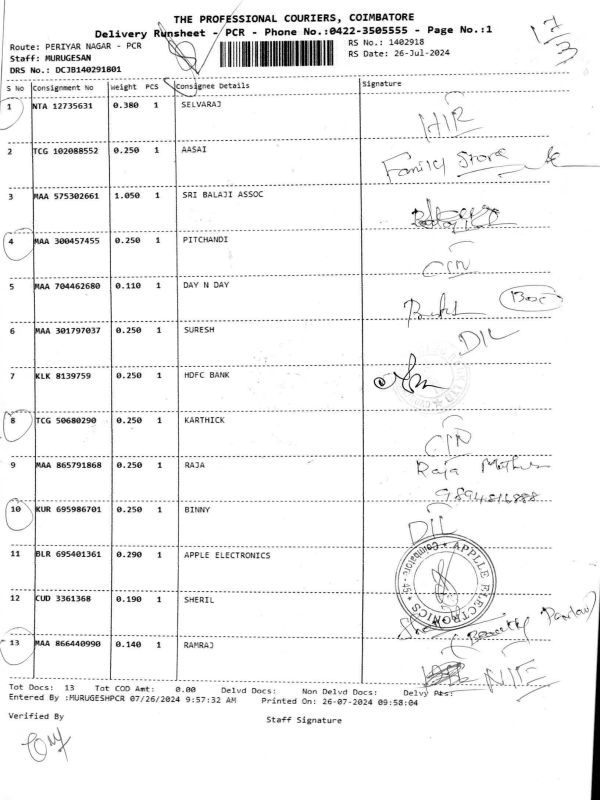 THE PROFESSIONAL COURIERS, COIMBATORE
Delivery Runsheet - PCR - Phone No.:0422-3505555 - Page No.:1
17/3
Route: PERIYAR NAGAR - PCR
RS No.: 1402918
Staff: MURUGESAN
RS Date: 26-Jul-2024
DRS No.: DCJB140291801
S No Consignment No Weight PCS Consignee Details Signature
1 NTA 12735631 0.380 1 SELVARAJ
2 TCG 102088552 0.250 1 AASAI Family Store
3 MAA 575302661 1.050 1 SRI BALAJI ASSOC
4 MAA 300457455 0.250 1 PITCHANDI
5 MAA 704462680 0.110 1 DAY N DAY Box
6 MAA 301797037 0.250 1 SURESH DIL
7 KLK 8139759 0.250 1 HDFC BANK
8 TCG 50680290 0.250 1 KARTHICK
9 MAA 865791868 0.250 1 RAJA Raja
10 KUR 695986701 0.250 1 BINNY DIL
11 BLR 695401361 0.290 1 APPLE ELECTRONICS
APPLLE ELECTRONICS * Coimbatore - 45 *
12 CUD 3361368 0.190 1 SHERIL
13 MAA 866440990 0.140 1 RAMRAJ
Tot Docs: 13 Tot COD Amt: 0.00 Delvd Docs: Non Delvd Docs: Delvy Pts:
Entered By :MURUGESHPCR 07/26/2024 9:57:32 AM Printed On: 26-07-2024 09:58:04
Verified By Staff Signature